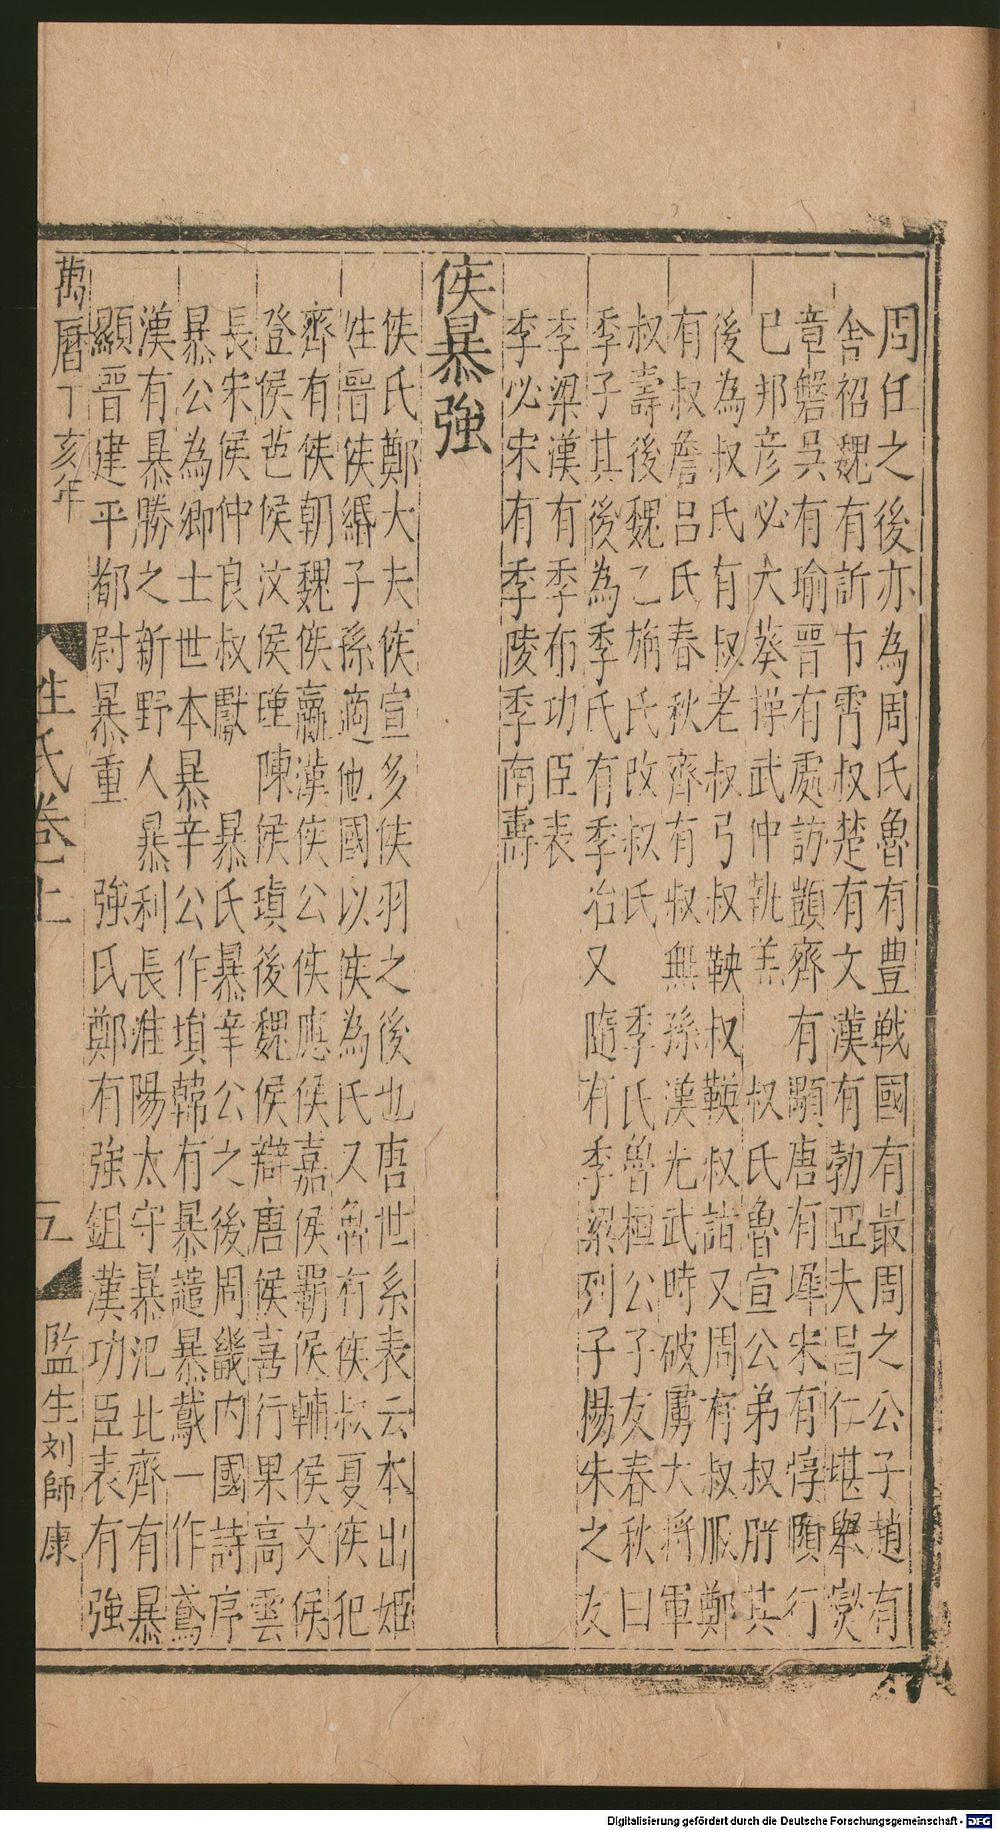 周任之後亦為周氏魯有豊戦國有最周之公子趙有
舎袑魏有訢市霄叔楚有文漢有勃亞夫昌仁堪舉爕
章磐吳有瑜晋有處訪顗齊有顒唐有墀宋有惇頤行
巳邦彦必大葵㩀武仲執羔　叔氏魯宣公弟叔肸其
後為叔氏有叔老叔弓叔鞅叔輒叔詣又周有叔服鄭
有叔詹吕氏春秋齊有叔無孫漢光武時破虜大將軍
叔壽後魏乙旃氏改叔氏　季氏魯桓公子友春秋曰
季子其後為季氏有季冶又隨有季梁列子楊朱之友
季梁漢有季布功臣表
季必宋有季陵季南壽
侯暴強
侯氏鄭大夫侯宣多侯羽之後也唐世系表云本出姬
姓晋侯緡子孫適他國以侯為氏又魯有侯叔夏侯犯
齊有侯朝魏侯嬴漢侯公侯應侯嘉侯霸侯輔侯文侯
登侯芭侯汶侯瑾陳侯瑱後魏侯辯唐侯喜行果高雲
長宋侯仲良叔獻　暴氏暴辛公之後周畿内國詩序
暴公為卿士世本暴辛公作塤韓有暴譴暴鳶一作鳶
漢有暴勝之新野人暴利長淮陽太守暴汜北齊有暴
顯晋建平都尉暴重　強氏鄭有強鉏漢功臣表有強
萬曆丁亥年
姓氏卷上
五
監生刘師康
Digitalisierung gefördert durch die Deutsche Forschungsgemeinschaft - DFG